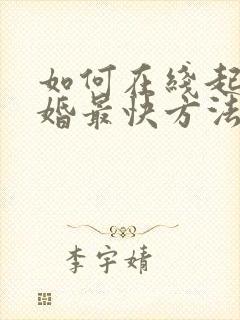 如何在线起
婚最快方法
李宇婧